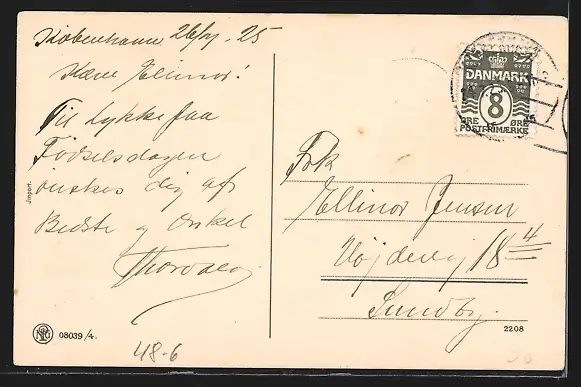 København 26/11 - 25
Kære Ellinor!
Til Lykke paa
Fødselsdagen
ønskes dig af
Bedste og Onkel
Thorvald
Import.
08039/4.
48-6
DANMARK
8
ØRE ØRE
POSTFRIMÆRKE
Frk
Ellinor Jensen
Højdevej 18 4
Sundby.
2208